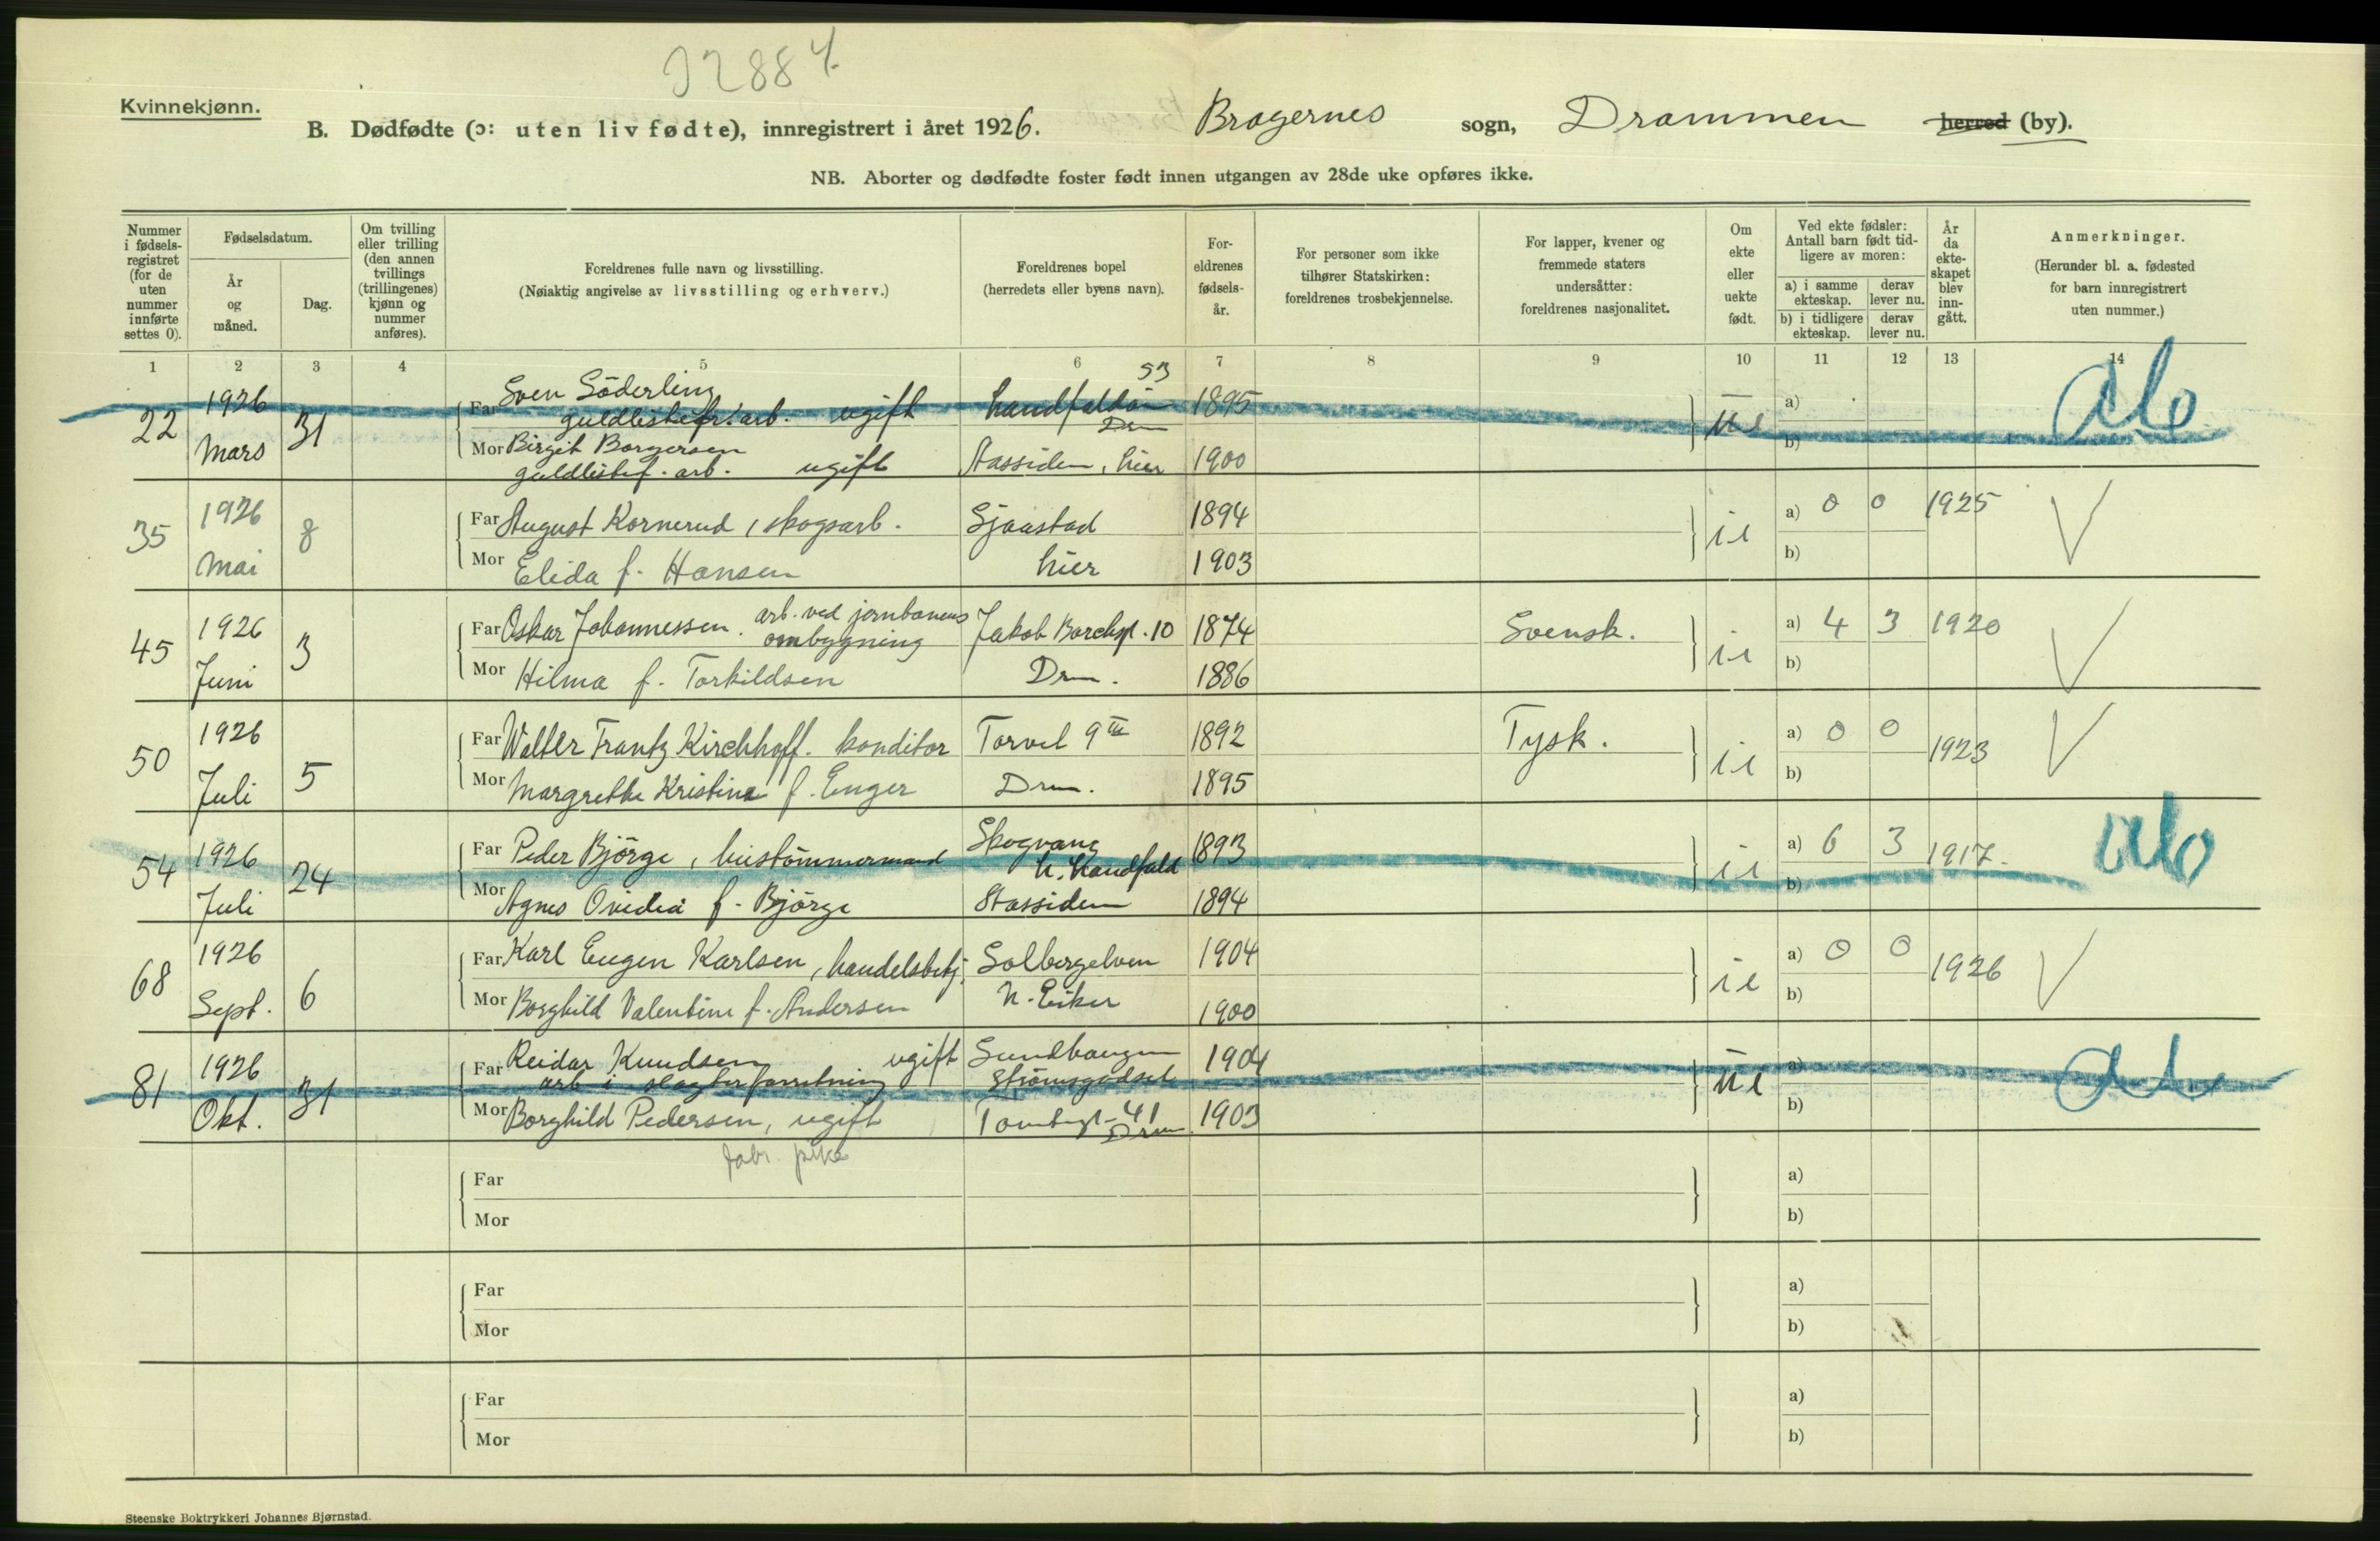 J 2884.
Kvinnekjønn.
B. Dødfødte (ɔ: uten liv fødte), innregistrert i året 1926. Bragernes sogn, Drammen herred (by).
NB. Aborter og dødfødte foster født innen utgangen av 28de uke opføres ikke.
Nummer
i fødsels-
registret
(for de
uten
nummer
innførte
settes 0).
Fødselsdatum.
År
og
måned.
Dag.
Om tvilling
eller trilling
(den annen
tvillings
(trillingenes)
kjønn og
nummer
anføres).
Foreldrenes fulle navn og livsstilling.
(Nøiaktig angivelse av livsstilling og erhverv.)
Foreldrenes bopel
(herredets eller byens navn).
For-
eldrenes
fødsels-
år.
For personer som ikke
tilhører Statskirken:
foreldrenes trosbekjennelse.
For lapper, kvener og
fremmede staters
undersåtter:
foreldrenes nasjonalitet.
Om
ekte
eller
uekte
født.
Ved ekte fødsler:
Antall barn født tid-
ligere av moren:
a) i samme
ekteskap.
derav
lever nu.
b) i tidligere
ekteskap.
derav
lever nu.
År
da
ekte-
skapet
blev
inn-
gått.
Anmerkninger.
(Herunder bl. a. fødested
for barn innregistrert
uten nummer.)
1 2 3 4 5 6 7 8 9 10 11 12 13 14
22 1926 Mars 31
Far Sven Söderling
guldlistefr. arb. ugift 53 1895 ue a)
Drm
Mor Birgit Borgersen
guldlistef. arb. ugift Aassiden, Lier 1900 b)
35 1926 Mai 8
Far August Kornerud, skogsarb. Sjaastad 1894 a) 0 0 1925
Mor Elida f. Hansen Lier 1903 b)
45 1926 Juni 3
Far Oskar Johannessen. arb. ved jernbanens
ombygning Jakob Borchsgt. 10 1874 Svensk. a) 4 3 1920
Mor Hilma f. Torkildsen Drm. 1886 b)
50 1926 Juli 5
Far Walter Frantz Kirchhoff. konditor Torvet 9 III 1892 Tysk. a) 0 0 1923
Mor Margrethe Kristine f. Enger Drm. 1895 b)
54 1926 Juli 24
Far Peder Björge, hustömmermand Skogvang 1893 a) 6 3 1917.
Mor Agnes Ovidia f. Björge Aassiden 1894 b)
68 1926 Sept. 6
Far Karl Eugen Karlsen, handelsbetj. Solbergelven 1904 a) 0 0 1926
Mor Borghild Valentine f. Andersen N. Eiker 1900 b)
81 1926 Okt. 31
Far Reidar Knudsen ugift Sundhaugen 1904 ue a)
arb i slagterforretning Strömsgodset
Mor Borghild Pedersen, ugift Tomtegt. 41 1903 b)
Drm
fabr. pike
Far a)
Mor b)
Far a)
Mor b)
Far a)
Mor b)
Steenske Boktrykkeri Johannes Bjørnstad.